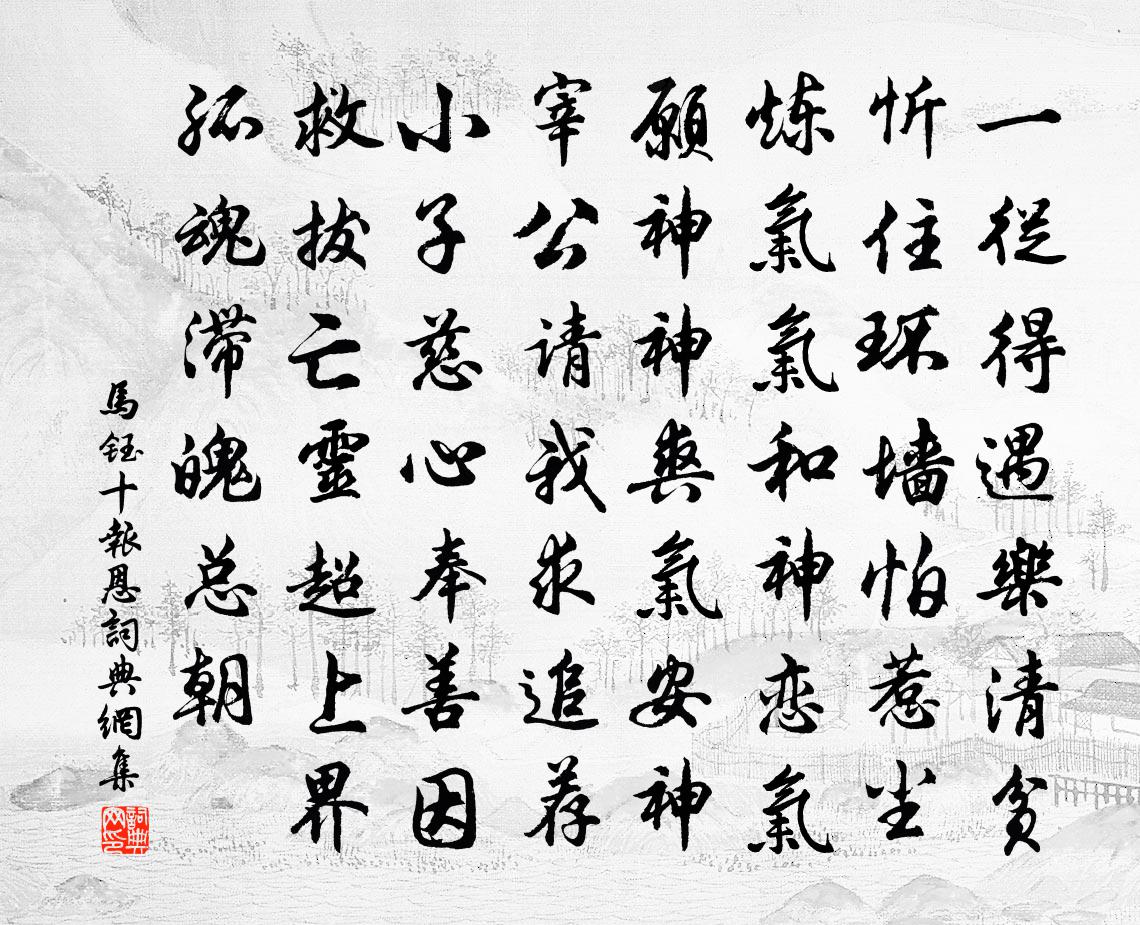 一從得遇樂清貧
忻住环墙怕惹尘
炼氣氣和神恋氣
願神神爽氣安神
宰公请我求追荐
小子慈心奉善因
救拔亡靈超上界
孤魂滞魄总朝
馬鈺十報恩詞典網集
詞典网印